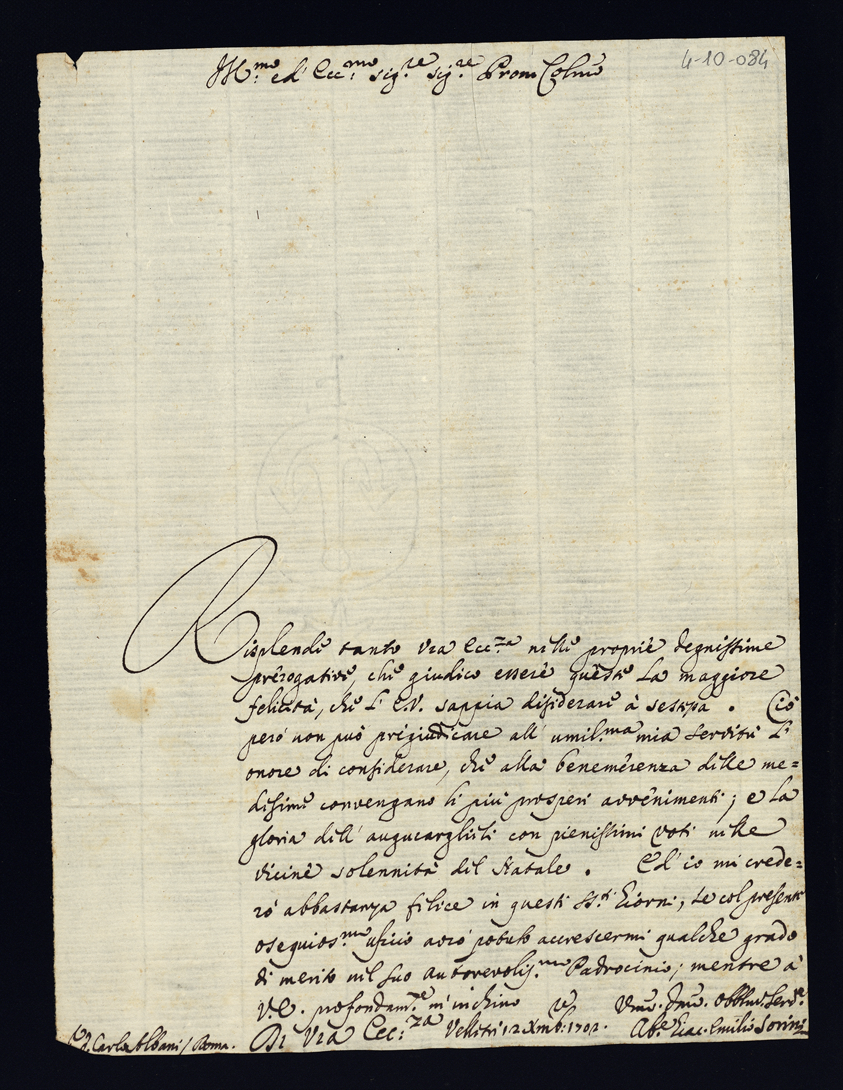 4-10-084
Ill.mo ed Ecc.mo Sig.re Sig.re Pron Colmo
Risplende tanto Vra Ecc.za nelle proprie degnissime
prerogative, che giudico essere questa la maggiore
felicità, che L'E.V. sappia desiderare à se stessa. Ciò
però non può pregiudicare all'umil.ma mia servitù l'
onore di considerare, che alla benemerenza delle me=
desime convengano li più prosperi avvenimenti; e la
gloria dell'augurarglieli con pienissimi voti nelle
vicine solennità del Natale. Ed io mi crede=
rò abbastanza felice in questi S.ti Giorni, se col presente
osequios.mo uficio avrò potuto accrescermi qualche grado
di merito nel suo autorevoliss.mo Padrocinio; mentre à
V.E. profondam.te m'inchino
Di Vra Ecc.za Velletri 12 Xmb.e 1702.
Umo. Dmo. Obblmo. Serv.e
Ab.e Giac. Emilio
D. Carlo Albani / Roma.